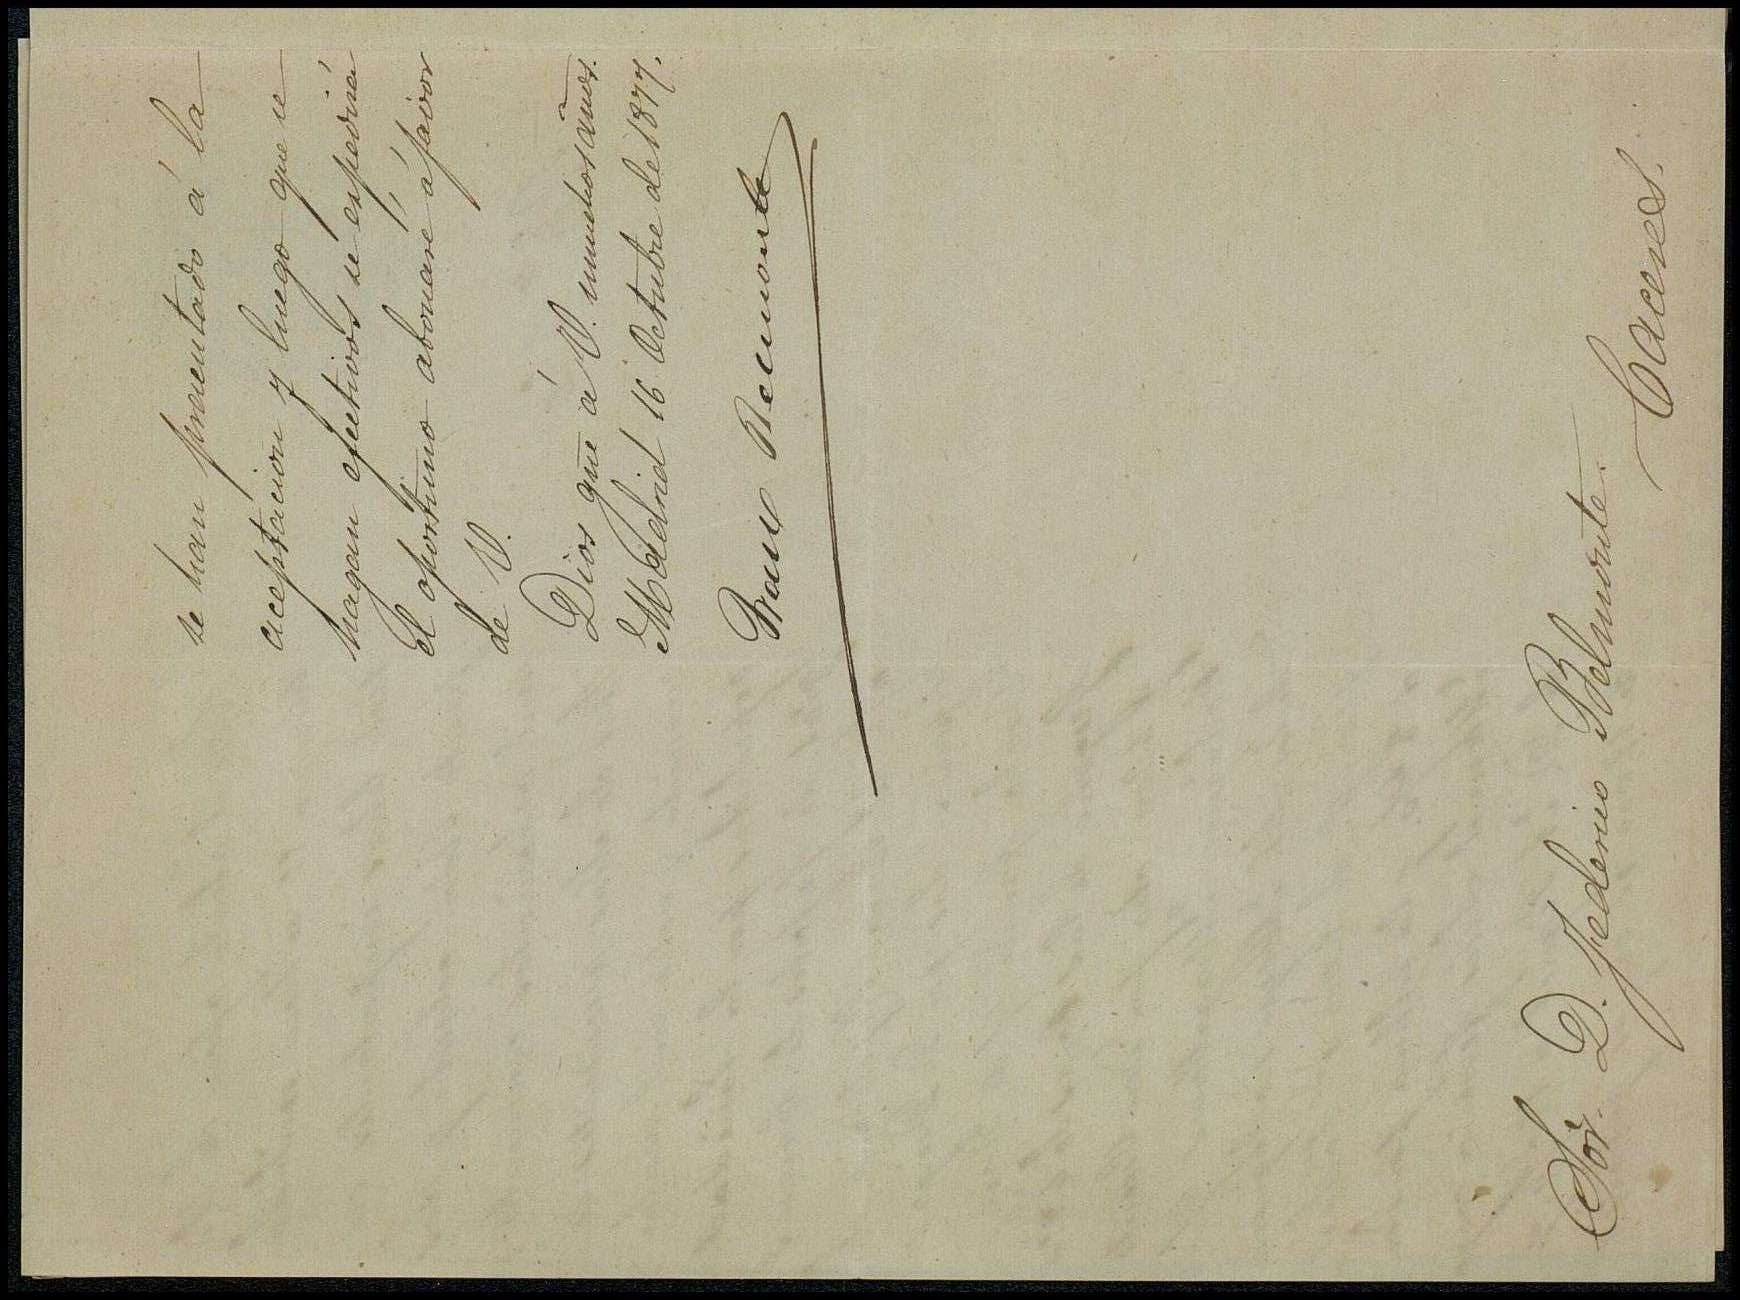 se han presentado á la
aceptacion y luego que se
hagan efectivos se espedirá
el oportuno abonaré á favor
de V.
Dios gue á V. muchos años.
Madrid 16 Octubre de 1877.
Belmonte
Sor. D. Federico Belmonte.
Caceres.